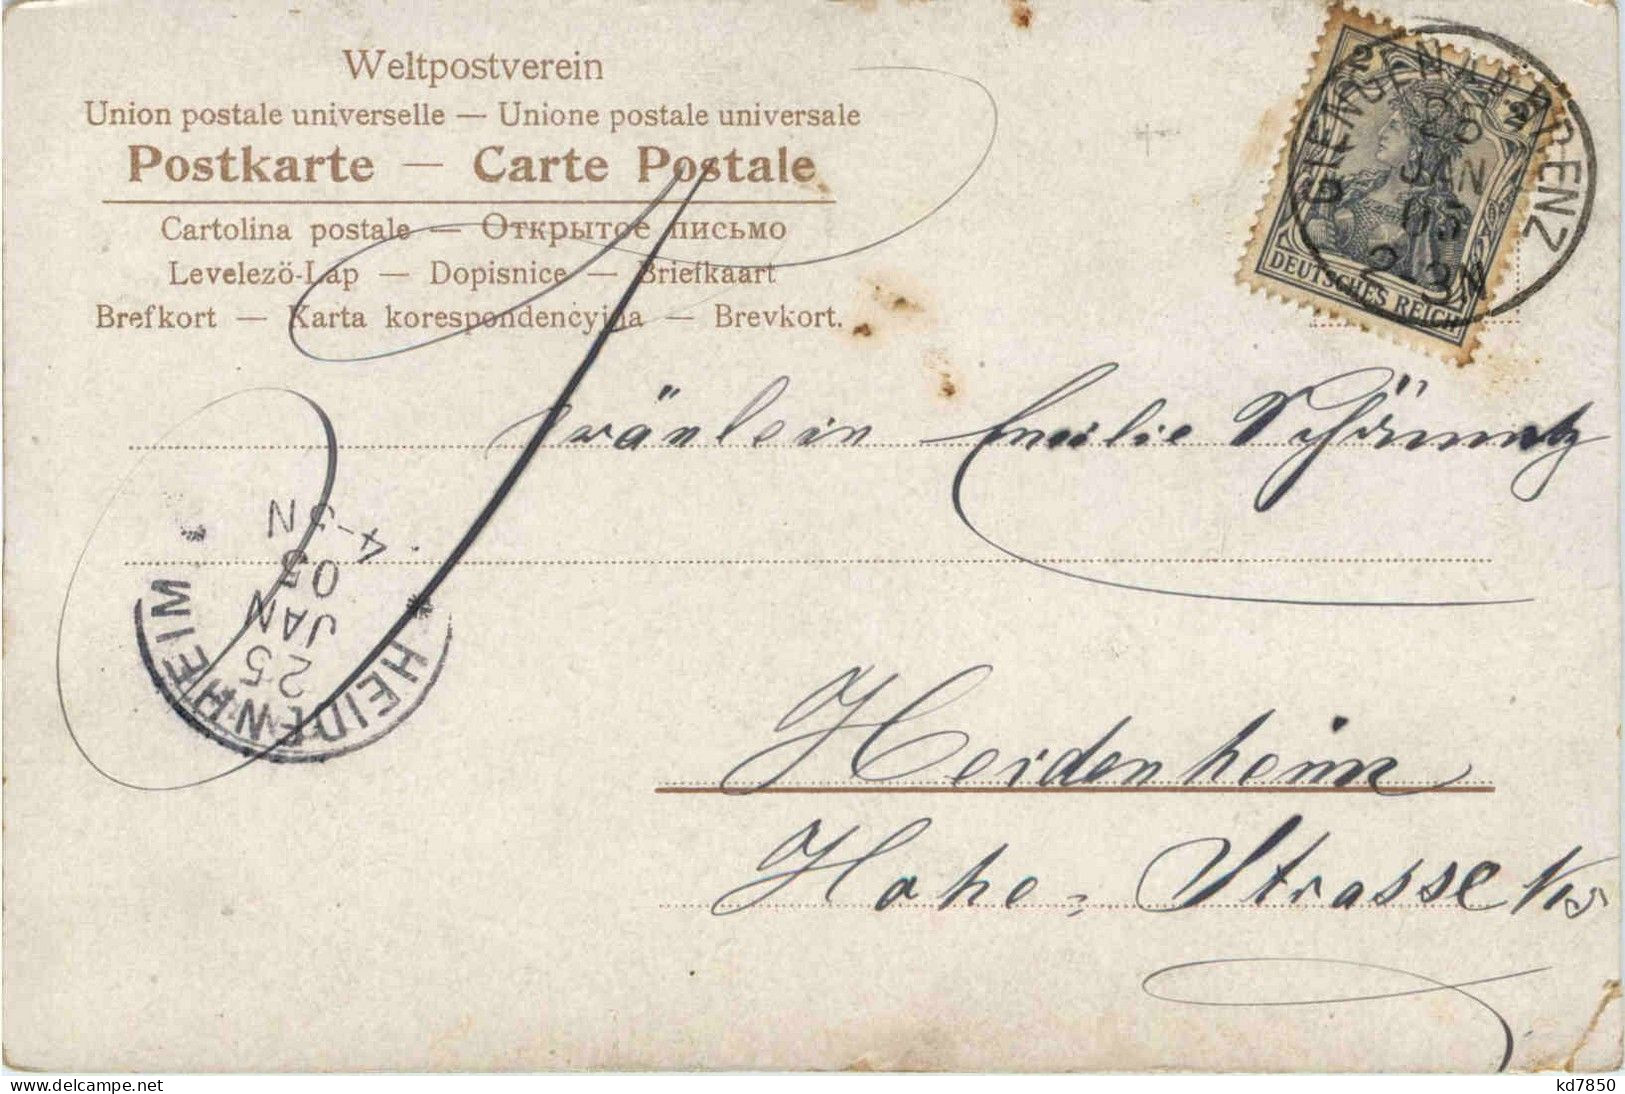 Weltpostverein
Union postale universelle — Unione postale universale
Postkarte — Carte Postale
Cartolina postale — Открытое письмо
Levelezö-Lap — Dopisnice — Briefkaart
Brefkort — Karta korespondencyjna — Brevkort.
2 2
DEUTSCHES REICH
GIENGEN A.D. BRENZ
25
JAN
05
2-3N
Fräulein Emilie
HEIDENHEIM
25
JAN
05
4-5N
Heidenheim
Hohe-Strasse
delcampe.net
kd7850